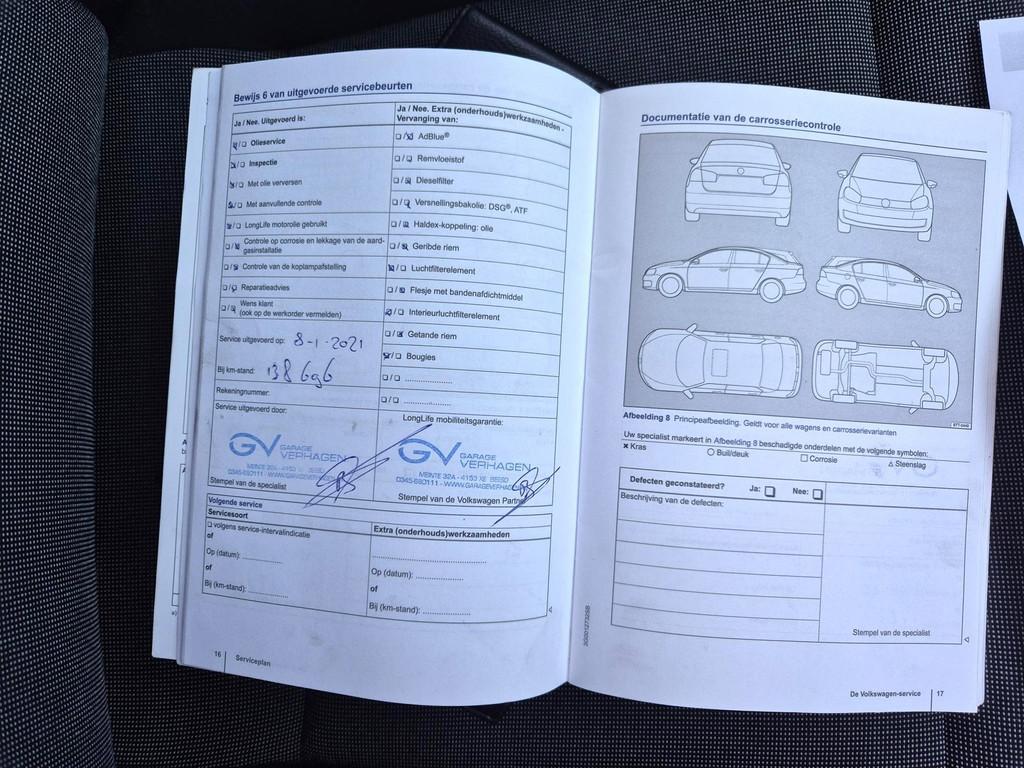 Bewijs 6 van uitgevoerde servicebeurten
Ja / Nee. Uitgevoerd is:
Olieservice
Inspectie
Met olie verversen
Met aanvullende controle
LongLife motorolie gebruikt
Controle op corrosie en lekkage van de aard-
gasinstallatie
Controle van de koplampafstelling
Reparatieadvies
Wens klant
(ook op de werkorder vermelden)
Service uitgevoerd op: 8-1-2021
Bij km-stand: 138 696
Rekeningnummer:
Service uitgevoerd door:
GV GARAGE
VERHAGEN
0345-680111 - WWW.GARAGEVERHAGEN
Stempel van de specialist
Ja / Nee. Extra (onderhouds)werkzaamheden -
Vervanging van:
AdBlue®
Remvloeistof
Dieselfilter
Versnellingsbakolie: DSG®, ATF
Haldex-koppeling: olie
Geribde riem
Luchtfilterelement
Flesje met bandenafdichtmiddel
Interieurluchtfilterelement
Getande riem
Bougies
LongLife mobiliteitsgarantie:
GV GARAGE
VERHAGEN
MEINTE 32A - 4153 XE BEESD
0345-680111 - WWW.GARAGEVERHAG
Stempel van de Volkswagen Partner
Volgende service
Servicesoort
volgens service-intervalindicatie
of
Op (datum):
of
Bij (km-stand):
Extra (onderhouds)werkzaamheden
Op (datum):
of
Bij (km-stand):
16 Serviceplan
Documentatie van de carrosseriecontrole
Afbeelding 8 Principeafbeelding. Geldt voor alle wagens en carrosserievarianten
Uw specialist markeert in Afbeelding 8 beschadigde onderdelen met de volgende symbolen:
Kras
Buil/deuk
Corrosie
Steenslag
Defecten geconstateerd? Ja: Nee:
Beschrijving van de defecten:
Stempel van de specialist
3G0012732SB
De Volkswagen-service 17